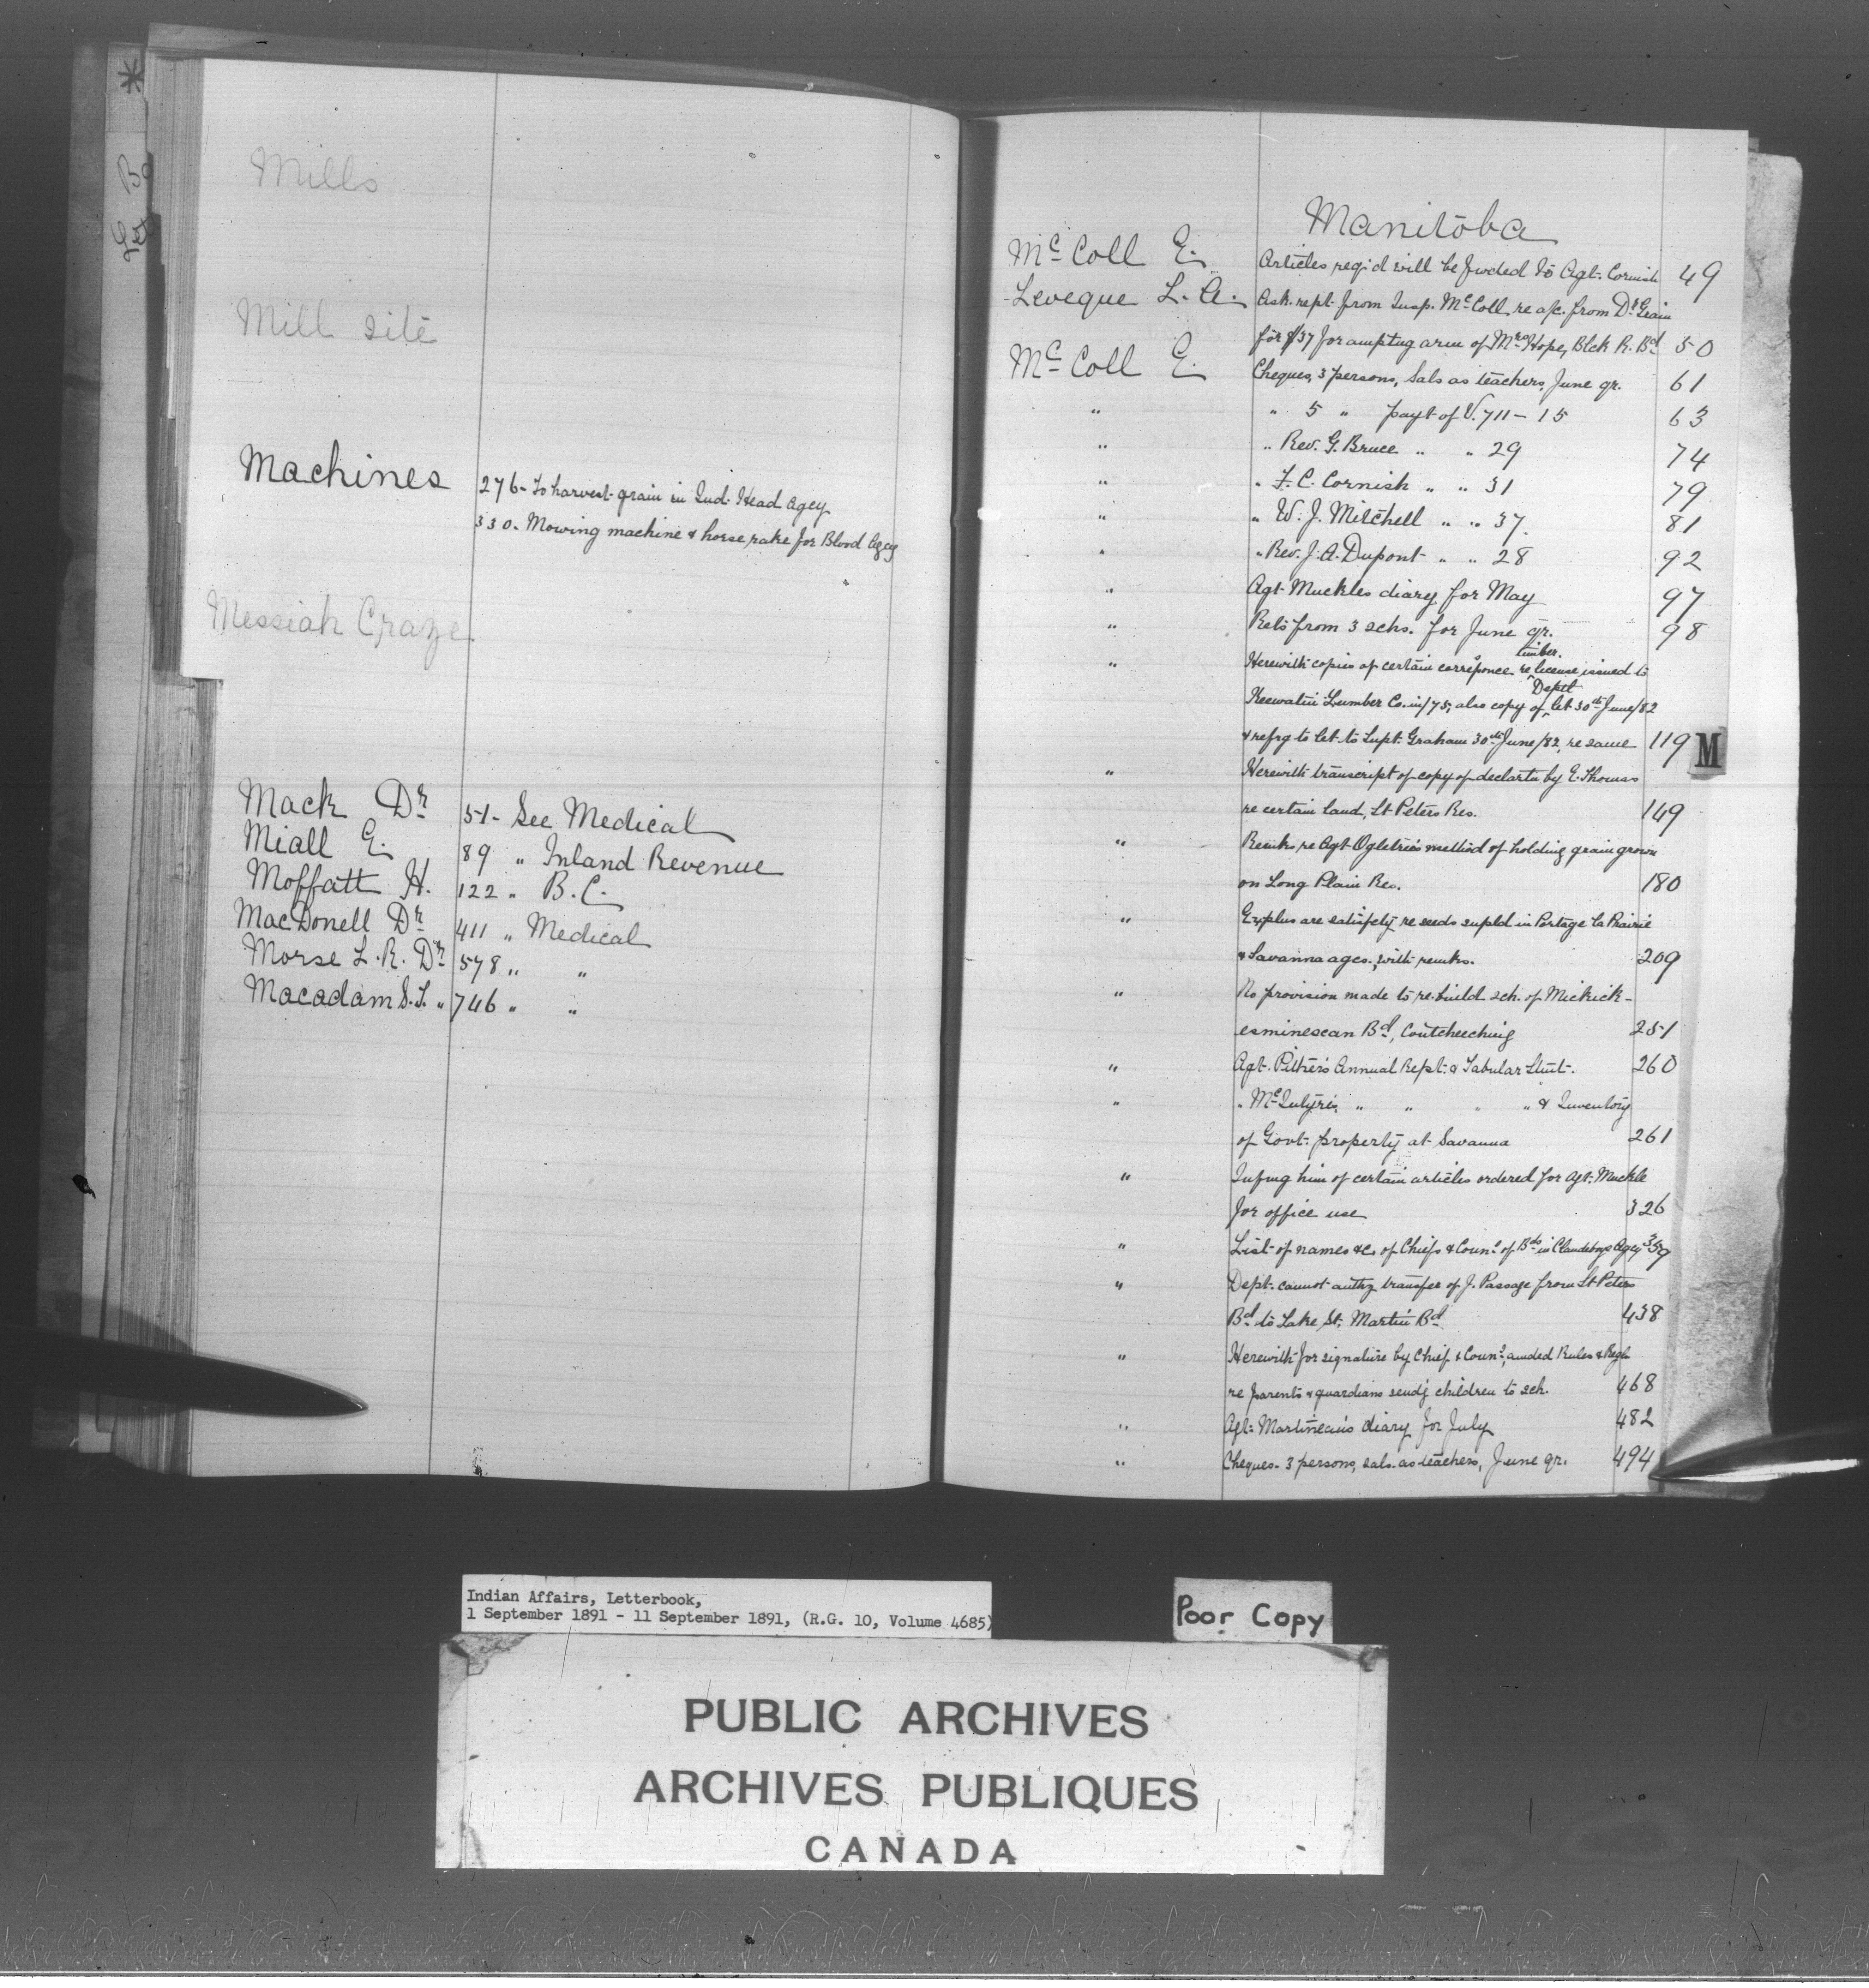 Mills
Mill site
Machines 276- To harvest grain in Ind. Head Agcy
330- Mowing machine & horse rake for Blood Agcy
Messiah Craze
Mack Dr 51- See Medical
Miall E. 89 " Inland Revenue
Moffatt H. 122 " B.C.
MacDonell Dr 411 " Medical
Morse L.R. Dr 578 " "
Macadam S.T. " 746 " "
Manitoba
McColl E. Articles reqd will be fwded to Agt. Cornish 49
Leveque L.A. Ask rept from Insp. McColl re a/c. from Dr Grain
for $37 for amptng arm of Mrs Hope, Blck R. Bd 50
McColl E. Cheques, 3 persons, Sals as teachers, June qr. 61
" " 5 " payt of V. 711-15 63
" " Rev. G. Bruce " " 29 74
" " F.C. Cornish " " 31 79
" " W.J. Mitchell " " 37 81
" " Rev. J.A. Dupont " " 28 92
" Agt Muckles diary for May 97
" Rets from 3 schs. for June qr. 98
timber
" Herewith copies of certain corresponce. re license issued to
Deptl
Keewatin Lumber Co. in/75, also copy of let 30th June/82
& refrg to let to Supt. Graham 30th June/82, re same 119
" Herewith transcript of copy of declartn by E. Thomas
re certain land, St Peters Res. 149
" Remks re Agt Ogletrie's method of holding grain grown
on Long Plain Res. 180
" Explns are satisfcty re seeds supld in Portage la Prairie
& Savanna ages., with remks. 209
" No provision made to re-build sch. of Mickick-
esminescan Bd, Coutcheeching 251
" Agt. Pither's Annual Rept. & Tabular Stmt. 260
" " McIntyre's " " " " & Inventory
of Govt. property at Savanna 261
" Infmg him of certain articles ordered for Agt. Muckle
for office use 326
" List of names &c. of Chiefs & Couns of Bds in Clandeboye Agcy 359
" Dept. cannot authz transfer of J. Passage from St Peters
Bd to Lake St. Martin Bd 438
" Herewith for signature by Chief & Couns, amded Rules & Regls
re parents & guardians sendg children to sch. 468
" Agt. Martineau's diary for July 482
" Cheques. 3 persons, sals. as teachers, June qr. 494
M
Indian Affairs, Letterbook,
1 September 1891 - 11 September 1891, (R.G. 10, Volume 4685)
Poor Copy
PUBLIC ARCHIVES
ARCHIVES PUBLIQUES
CANADA